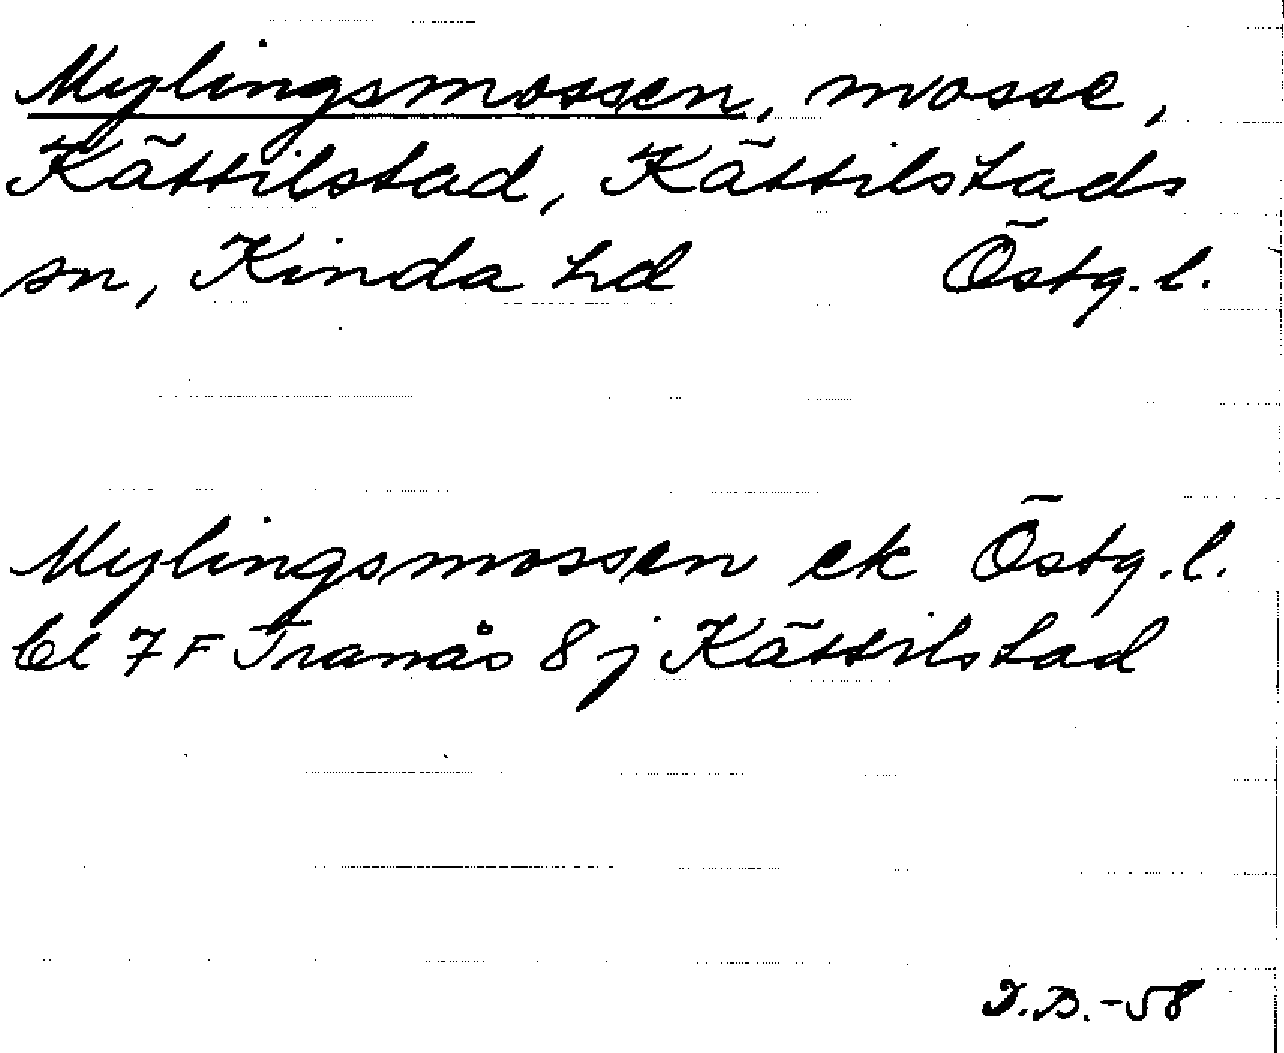 Mylingsmossen, mosse,
Kättilstad, Kättilstads
sn, Kinda hd Östg. l.
Mylingsmossen ek Östg. l.
bl 7 F Tranås 8 j Kättilstad
I.B. -58